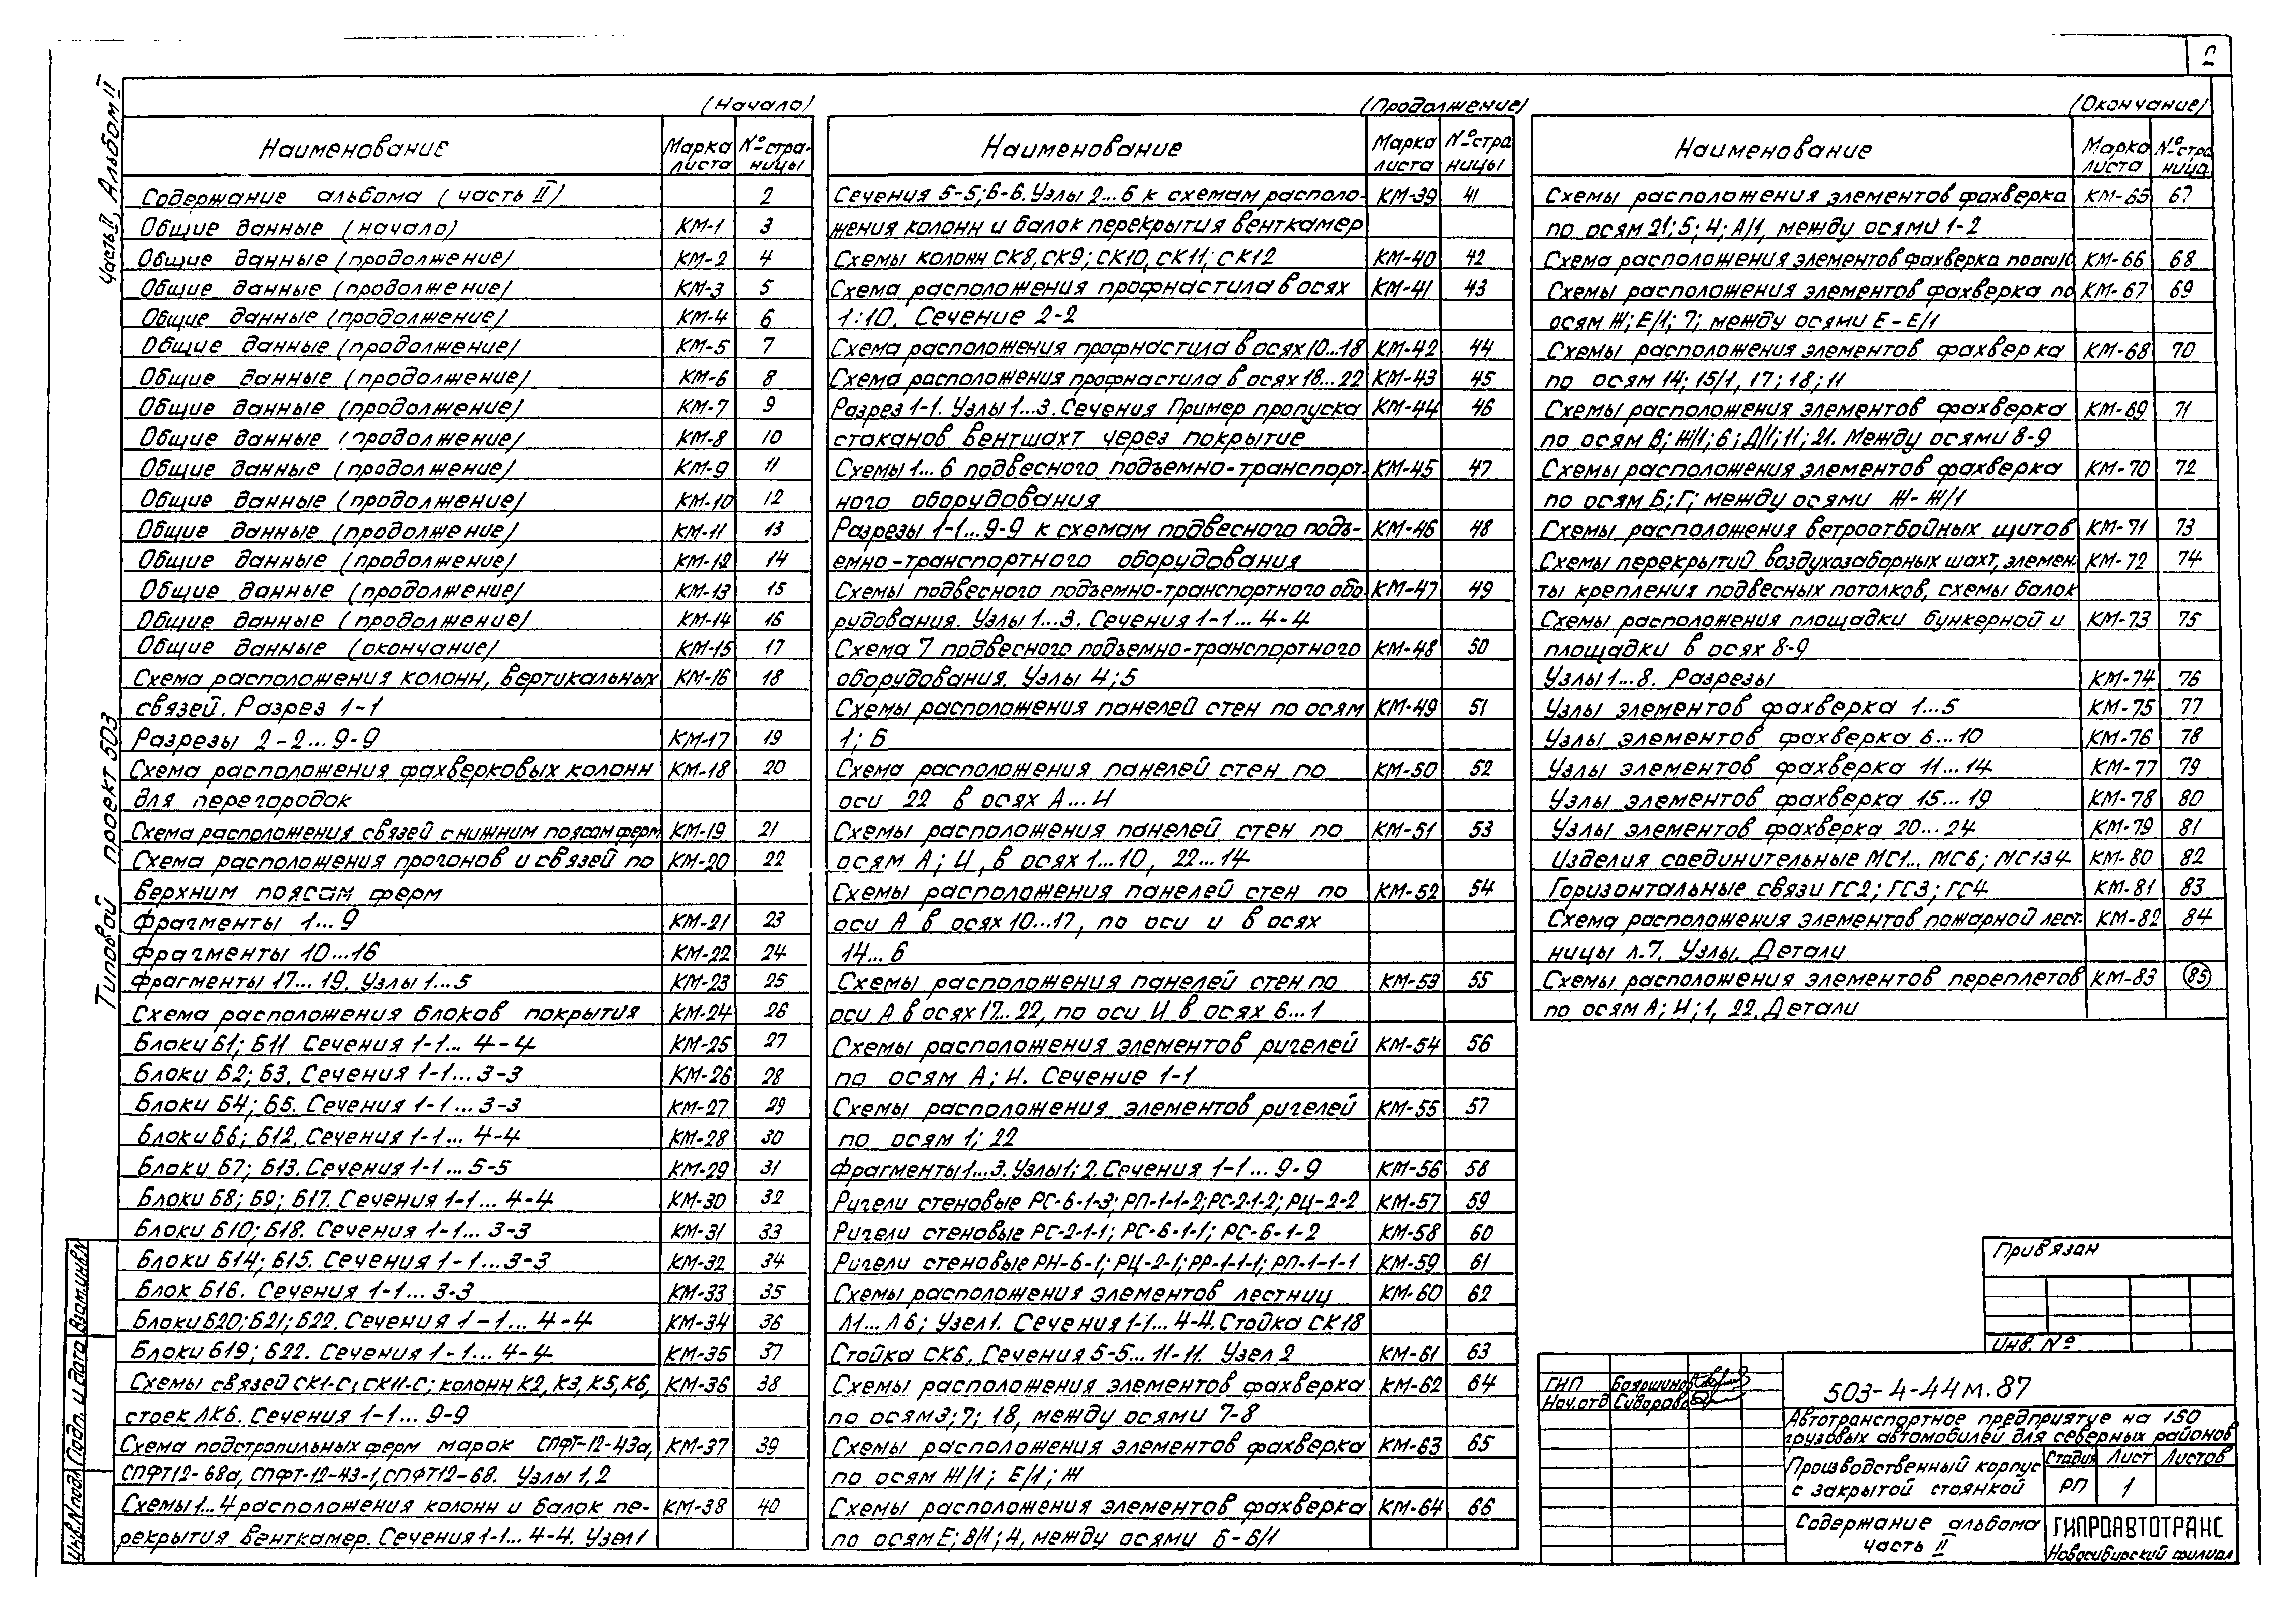 2
Часть II, Альбом II
Типовой проект 503
(Начало)
Наименование Марка листа №страницы
Содержание альбома (часть II) 2
Общие данные (начало) КМ-1 3
Общие данные (продолжение) КМ-2 4
Общие данные (продолжение) КМ-3 5
Общие данные (продолжение) КМ-4 6
Общие данные (продолжение) КМ-5 7
Общие данные (продолжение) КМ-6 8
Общие данные (продолжение) КМ-7 9
Общие данные (продолжение) КМ-8 10
Общие данные (продолжение) КМ-9 11
Общие данные (продолжение) КМ-10 12
Общие данные (продолжение) КМ-11 13
Общие данные (продолжение) КМ-12 14
Общие данные (продолжение) КМ-13 15
Общие данные (продолжение) КМ-14 16
Общие данные (окончание) КМ-15 17
Схема расположения колонн, вертикальных КМ-16 18
связей. Разрез 1-1
Разрезы 2-2...9-9 КМ-17 19
Схема расположения фахверковых колонн КМ-18 20
для перегородок
Схема расположения связей с нижним поясам ферм КМ-19 21
Схема расположения прогонов и связей по КМ-20 22
верхним поясам ферм
Фрагменты 1...9 КМ-21 23
Фрагменты 10...16 КМ-22 24
Фрагменты 17...19. Узлы 1...5 КМ-23 25
Схема расположения блоков покрытия КМ-24 26
Блоки Б1; Б11 Сечения 1-1... 4-4 КМ-25 27
Блоки Б2; Б3. Сечения 1-1...3-3 КМ-26 28
Блоки Б4; Б5. Сечения 1-1...3-3 КМ-27 29
Блоки Б6; Б12. Сечения 1-1... 4-4 КМ-28 30
Блоки Б7; Б13. Сечения 1-1... 5-5 КМ-29 31
Блоки Б8; Б9; Б17. Сечения 1-1... 4-4 КМ-30 32
Блоки Б10; Б18. Сечения 1-1... 3-3 КМ-31 33
Блоки Б14; Б15. Сечения 1-1...3-3 КМ-32 34
Блок Б16. Сечения 1-1... 3-3 КМ-33 35
Блоки Б20; Б21; Б22. Сечения 1-1... 4-4 КМ-34 36
Блоки Б19; Б22. Сечения 1-1... 4-4 КМ-35 37
Схемы связей СК1-С; СК11-С; колонн К2, К3, К5, К6, КМ-36 38
стоек ЛК6. Сечения 1-1... 9-9
Схема подстропильных ферм марок СПФТ-12-43а, КМ-37 39
СПФТ12-68а, СПФТ-12-43-1, СПФТ12-68. Узлы 1,2
Схемы 1...4 расположения колонн и балок пе- КМ-38 40
рекрытия венткамер. Сечения 1-1... 4-4. Узел 1
(Продолжение)
Наименование Марка листа №страницы
Сечения 5-5; 6-6. Узлы 2...6 к схемам располо- КМ-39 41
жения колонн и балок перекрытия венткамер
Схемы колонн СК8, СК9; СК10, СК11; СК12 КМ-40 42
Схема расположения профнастила в осях КМ-41 43
1:10. Сечение 2-2
Схема расположения профнастила в осях 10...18 КМ-42 44
Схема расположения профнастила в осях 18...22 КМ-43 45
Разрез 1-1. Узлы 1...3. Сечения Пример пропуска КМ-44 46
стаканов вентшахт через покрытие
Схемы 1... 6 подвесного подъемно-транспорт- КМ-45 47
ного оборудования
Разрезы 1-1...9-9 к схемам подвесного подъ- КМ-46 48
емно-транспортного оборудования
Схемы подвесного подъемно-транспортного обо- КМ-47 49
рудования. Узлы 1...3. Сечения 1-1... 4-4
Схема 7 подвесного подъемно-транспортного КМ-48 50
оборудования. Узлы 4; 5
Схемы расположения панелей стен по осям КМ-49 51
1; Б
Схема расположения панелей стен по КМ-50 52
оси 22 в осях А...И
Схемы расположения панелей стен по КМ-51 53
осям А; И, в осях 1...10, 22...14
Схемы расположения панелей стен по КМ-52 54
оси А в осях 10...17, по оси и в осях
14...6
Схемы расположения панелей стен по КМ-53 55
оси А в осях 17...22, по оси И в осях 6...1
Схемы расположения элементов ригелей КМ-54 56
по осям А; И. Сечение 1-1
Схемы расположения элементов ригелей КМ-55 57
по осям 1; 22
Фрагменты 1...3. Узлы 1; 2. Сечения 1-1... 9-9 КМ-56 58
Ригели стеновые РС-6-1-3; РП-1-1-2; РС-2-1-2; РЦ-2-2 КМ-57 59
Ригели стеновые РС-2-1-1; РС-6-1-1; РС-6-1-2 КМ-58 60
Ригели стеновые РН-6-1; РЦ-2-1; РР-1-1-1; РП-1-1-1 КМ-59 61
Схемы расположения элементов лестниц КМ-60 62
Л1...Л6; Узел 1. Сечения 1-1... 4-4. Стойка СК18
Стойка СК6. Сечения 5-5... 11-11. Узел 2 КМ-61 63
Схемы расположения элементов фахверка КМ-62 64
по осям 3; 7; 18, между осями 7-8
Схемы расположения элементов фахверка КМ-63 65
по осям Ж/1; Е/1; Ж
Схемы расположения элементов фахверка КМ-64 66
по осям Е; В/1; 4, между осями Б-Б/1
(Окончание)
Наименование Марка листа №страница
Схемы расположения элементов фахверка КМ-65 67
по осям 21; 5; 4; А/1, между осями 1-2
Схема расположения элементов фахверка по оси КМ-66 68
Схемы расположения элементов фахверка по КМ-67 69
осям Ж; Е/1; 7; между осями Е-Е/1
Схемы расположения элементов фахверка КМ-68 70
по осям 14; 15/1, 17; 18; 11
Схемы расположения элементов фахверка КМ-69 71
по осям В; Ж/1; 6; Д/1; 11; 21. Между осями 8-9
Схемы расположения элементов фахверка КМ-70 72
по осям Б; Г; между осями Ж-Ж/1
Схемы расположения ветроотбойных щитов КМ-71 73
Схемы перекрытий воздухозаборных шахт, элемен- КМ-72 74
ты крепления подвесных потолков, схемы балок
Схемы расположения площадки бункерной и КМ-73 75
площадки в осях 8-9
Узлы 1...8. Разрезы КМ-74 76
Узлы элементов фахверка 1...5 КМ-75 77
Узлы элементов фахверка 6...10 КМ-76 78
Узлы элементов фахверка 11...14 КМ-77 79
Узлы элементов фахверка 15...19 КМ-78 80
Узлы элементов фахверка 20...24 КМ-79 81
Изделия соединительные МС1... МС6; МС134 КМ-80 82
Горизонтальные связи ГС2; ГС3; ГС4 КМ-81 83
Схема расположения элементов пожарной лест- КМ-82 84
ницы л.7. Узлы. Детали
Схемы расположения элементов переплетов КМ-83 85
по осям А; И; 1, 22. Детали
Привязан
Инв. №
ГИП Бояршинов
Нач.отд Сидоров
503-4-44м.87
Автотранспортное предприятие на 150
грузовых автомобилей для северных районов
Производственный корпус
с закрытой стоянкой
Стадия Лист Листов
РП 1
Содержание альбома
часть II
ГИПРОАВТОТРАНС
Новосибирский филиал
Взам.инв.N
Подп. и дата
Инв.N подл